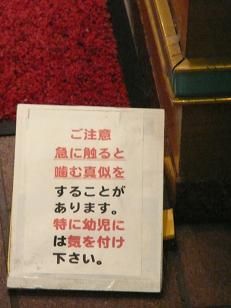 ご注意
急に触ると
噛む真似を
することが
あります。
特に幼児に
は気を付け
下さい。